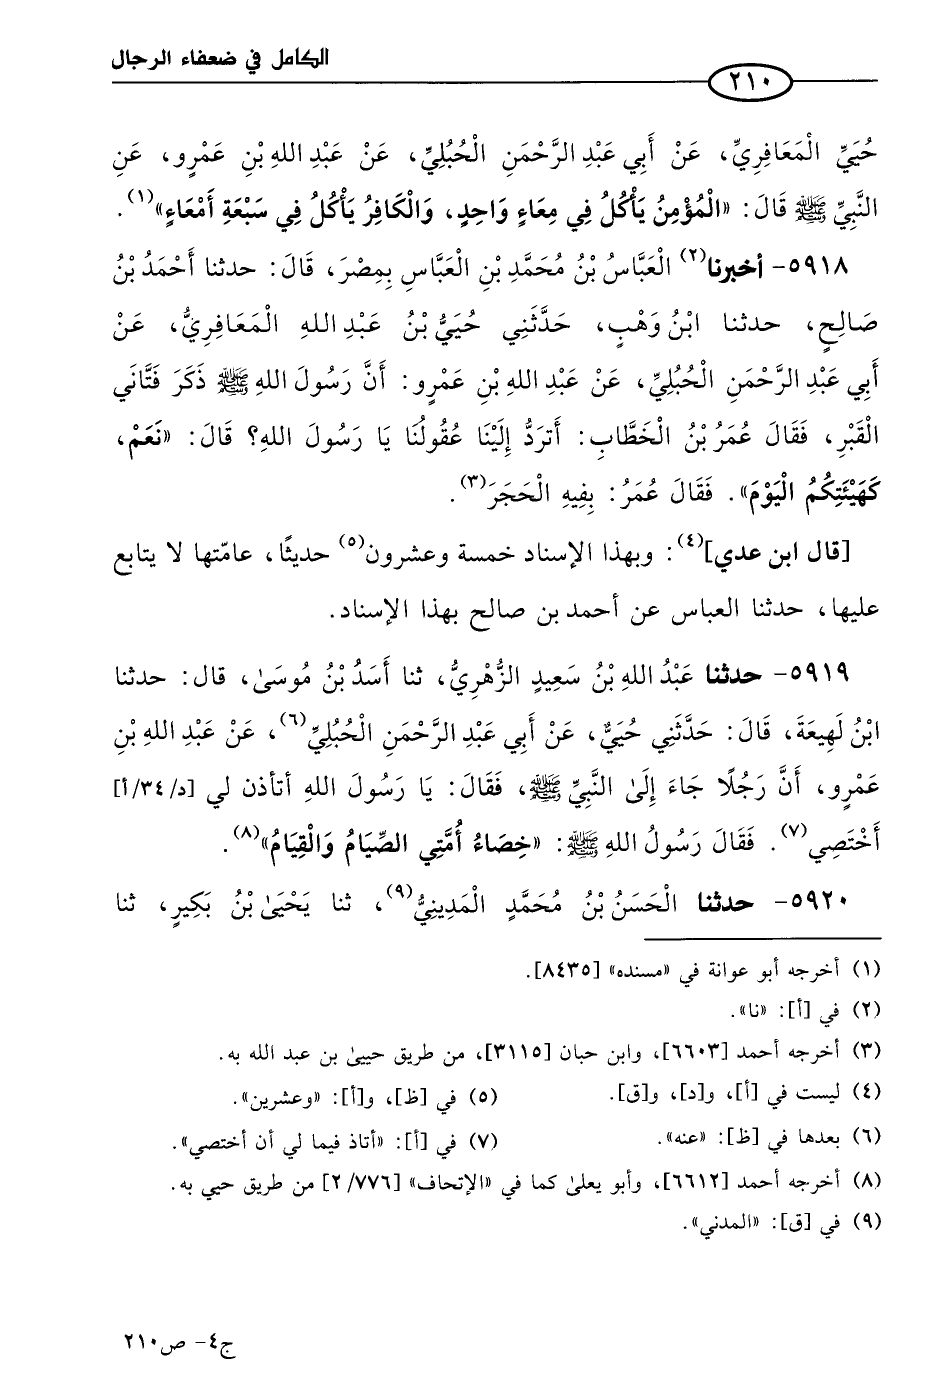 الكامل في ضعفاء الرجال
٢١٠
حُيَيِّ الْمَعَافِرِيِّ، عَنْ أَبِي عَبْدِ الرَّحْمَنِ الْحُبُلِيِّ، عَنْ عَبْدِ اللهِ بْنِ عَمْرٍو، عَنِ
النَّبِيِّ ﷺ قَالَ: «الْمُؤْمِنُ يَأْكُلُ فِي مِعَاءٍ وَاحِدٍ، وَالْكَافِرُ يَأْكُلُ فِي سَبْعَةِ أَمْعَاءٍ»(١).
٥٩١٨- أخبرنا(٢) الْعَبَّاسُ بْنُ مُحَمَّدِ بْنِ الْعَبَّاسِ بِمِصْرَ، قَالَ: حدثنا أَحْمَدُ بْنُ
صَالِحٍ، حدثنا ابْنُ وَهْبٍ، حَدَّثَنِي حُيَيُّ بْنُ عَبْدِ اللهِ الْمَعَافِرِيُّ، عَنْ
أَبِي عَبْدِ الرَّحْمَنِ الْحُبُلِيِّ، عَنْ عَبْدِ اللهِ بْنِ عَمْرٍو: أَنَّ رَسُولَ اللهِ ﷺ ذَكَرَ فَتَّانَي
الْقَبْرِ، فَقَالَ عُمَرُ بْنُ الْخَطَّابِ: أَتَرَدُّ إِلَيْنَا عُقُولُنَا يَا رَسُولَ اللهِ؟ قَالَ: «نَعَمْ،
كَهَيْئَتِكُمُ الْيَوْمَ». فَقَالَ عُمَرُ: بِفِيهِ الْحَجَرَ(٣).
[قال ابن عدي](٤): وبهذا الإسناد خمسة وعشرون(٥) حديثًا، عامّتها لا يتابع
عليها، حدثنا العباس عن أحمد بن صالح بهذا الإسناد.
٥٩١٩- حدثنا عَبْدُ اللهِ بْنُ سَعِيدٍ الزُّهْرِيُّ، ثنا أَسَدُ بْنُ مُوسَىٰ، قال: حدثنا
ابْنُ لَهِيعَةَ، قَالَ: حَدَّثَنِي حُيَيٌّ، عَنْ أَبِي عَبْدِ الرَّحْمَنِ الْحُبُلِيِّ(٦)، عَنْ عَبْدِ اللهِ بْنِ
عَمْرٍو، أَنَّ رَجُلًا جَاءَ إِلَىٰ النَّبِيِّ ﷺ، فَقَالَ: يَا رَسُولَ اللهِ أتأذن لي [د/٣٤/أ]
أَخْتَصِي(٧). فَقَالَ رَسُولُ اللهِ ﷺ: «خِصَاءُ أُمَّتِي الصِّيَامُ وَالْقِيَامُ»(٨).
٥٩٢٠- حدثنا الْحَسَنُ بْنُ مُحَمَّدٍ الْمَدِينِيُّ(٩)، ثنا يَحْيَىٰ بْنُ بَكِيرٍ، ثنا
(١) أخرجه أبو عوانة في «مسنده» [٨٤٣٥].
(٢) في [أ]: «نا».
(٣) أخرجه أحمد [٦٦٠٣]، وابن حبان [٣١١٥]، من طريق حييىٰ بن عبد الله به.
(٤) ليست في [أ]، و[د]، و[ق]. (٥) في [ظ]، و[أ]: «وعشرين».
(٦) بعدها في [ظ]: «عنه». (٧) في [أ]: «أتاذ فيما لي أن أختصي».
(٨) أخرجه أحمد [٦٦١٢]، وأبو يعلىٰ كما في «الإتحاف» [٢/٧٧٦] من طريق حيي به.
(٩) في [ق]: «المدني».
ج٤- ص٢١٠